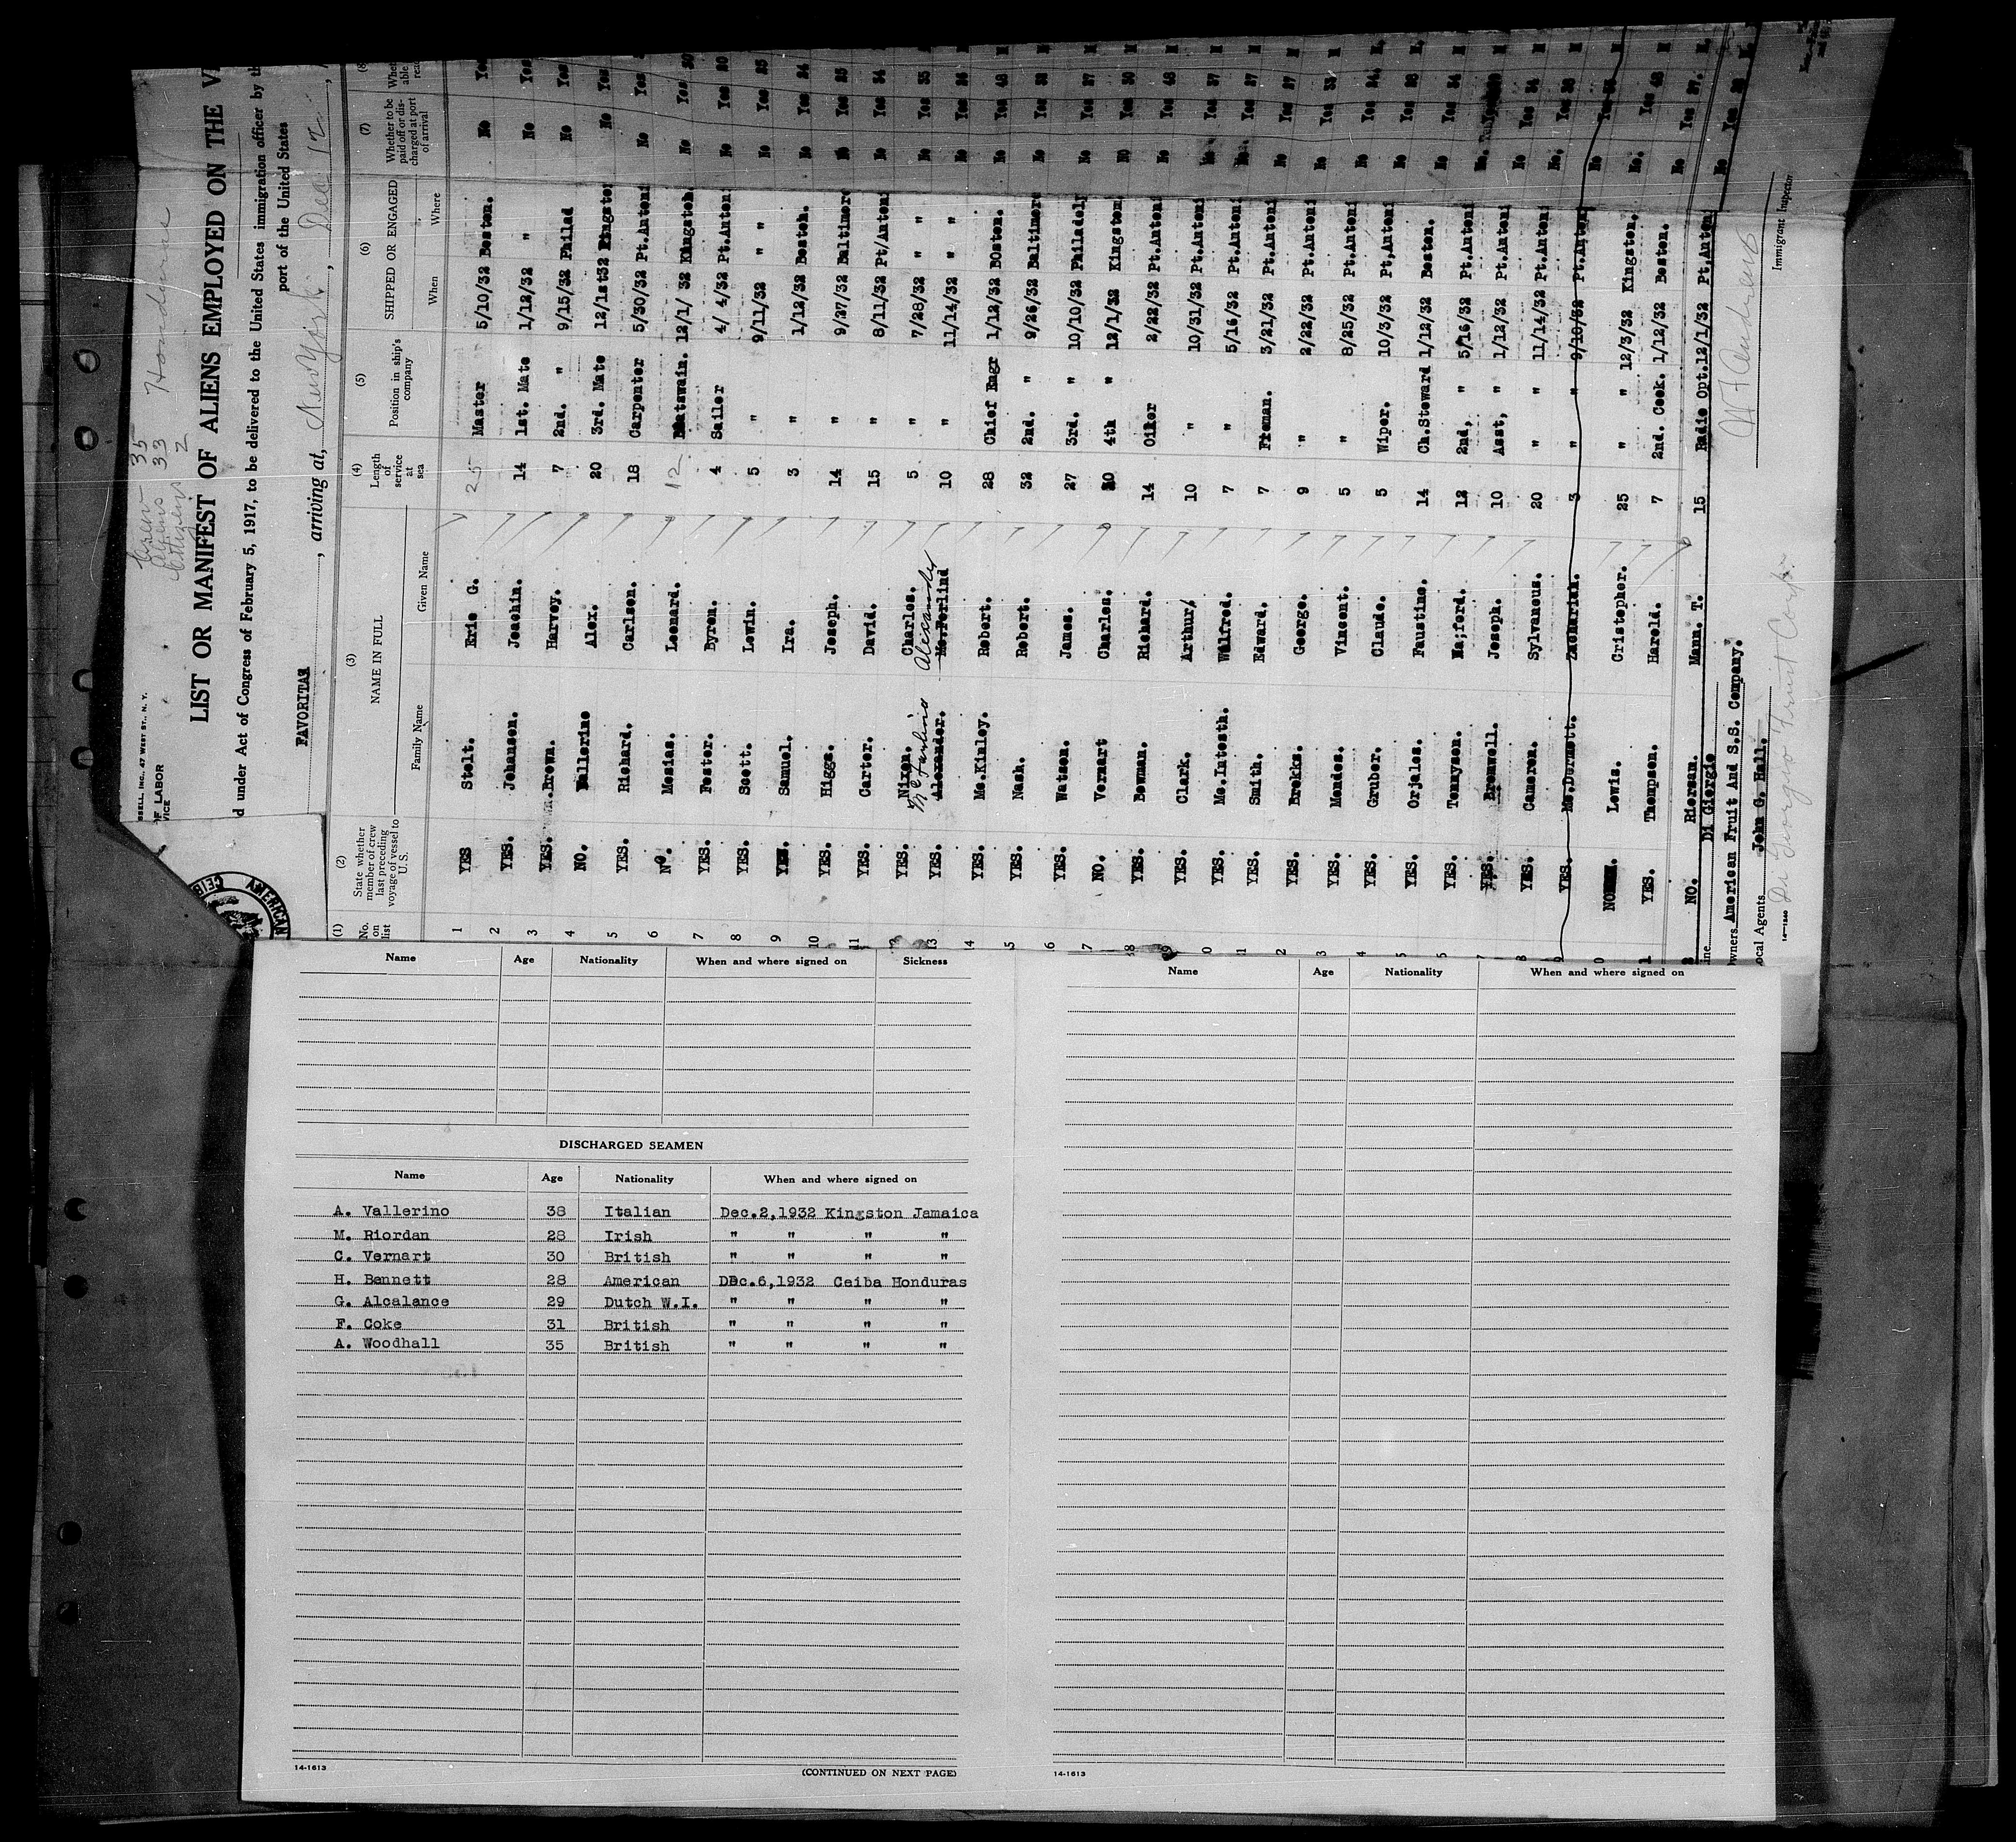 SSELL, INC., 47 WEST ST., N. Y.
OF LABOR
VICE
Crew 35
Aliens 33
Citizens 2
Honduras
LIST OR MANIFEST OF ALIENS EMPLOYED ON THE
d under Act of Congress of February 5, 1917, to be delivered to the United States immigration officer by
port of the United States
FAVORITAR , arriving at, New York , Dec 12
(1) No. on list
(2) State whether member of crew last preceding voyage of vessel to U.S.
(3) NAME IN FULL Family Name Given Name
(4) Length of service at sea
(5) Position in ship's company
(6) SHIPPED OR ENGAGED When Where
(7) Whether to be paid off or discharged at port of arrival
1 YES Stolt. Eric G. 25 Master 5/10/32 Boston. No
2 YES. Johansen. Joachin. 14 1st. Mate 1/12/32 " No Yes
3 YES. Brown. Harvey. 7 2nd. " 9/15/32 Philad No Yes
4 NO. Vallerino Alex. 20 3rd. Mate 12/1st32 Kingston No Yes
5 YES. Richard. Carlson. 18 Carpenter 5/30/32 Pt.Antoni No Yes
6 No. Mesias. Leonard. 12 Boatswain. 12/1/ 32 Kingston. No Yes 20
7 YES. Foster. Byron. 4 Sailor 4/ 4/32 Pt.Antoni No Yes 20
8 YES. Scott. Lewin. 5 " 9/11/32 " " No Yes 25
9 YES. Samuel. Ira. 3 " 1/12/32 Boston. No Yes 24
10 YES. Higgs. Joseph. 14 " 9/27/32 Baltimore No Yes 25
11 YES. Carter. David. 15 " 8/11/32 Pt/Antoni No Yes 34
YES. Nixon. Charles. 5 " 7/28/32 " " No Yes 35
13 YES. Alexander. Mc.Ferlind 10 " 11/14/32 " " No Yes
Alexander
14 YES. Mc.Kinley. Robert. 28 Chief Engr 1/12/32 BOston. No Yes 48
5 YES. Nash. Robert. 32 2nd. " 9/26/32 Baltimore No Yes
6 YES. Watson. James. 27 3rd. " 10/10/32 Philadelp No Yes
7 NO. Vernart Charles. 20 4th " 12/1/32 Kingston NO Yes 30
18 YES. Bowman. Richard. 14 Oiler 2/22/32 Pt.Antoni No Yes
YES. Clark. Arthur/ 10 " 10/31/32 Pt.Antoni Yes 37
0 YES. Mc.Intosth. Wilfred. 7 " 5/16/32 Pt.Antoni Yes 27
1 YES. Smith. Edward. 7 Fieman. 3/21/32 Pt.Antoni No Yes
2 YES. Brokks. George. 9 " 2/22/32 Pt.Antoni No Yes
3 YES. Mendes. Vincent. 5 " 8/25/32 Pt.Antoni No Yes
4 YES. Gruber. Claude. 5 Wiper. 10/3/32 Pt,Antoni No Yes
5 YES. Orjales. Faustino. 14 Ch.Steward 1/12/32 Boston. No Yes
YES. Tennyson. Na;ford. 12 2nd, " 5/16/32 Pt.Antoni No Yes 34
7 YES. Bromwell. Joseph. 10 Asst, " 1/12/32 Pt.Antoni
8 YES. Cameron. Sylvaneus. 20 " " 11/14/32 Pt.Antoni No Yes 34
9 YES. Mc.Durmott. Zachariah. 3 " " 9/10/32 Pt.Antoni No. Yes
0 Lewis. Cristopher. 25 " " 12/3/32 Kingston. No
1 YES. Thompson. Harold. 7 2nd. Cook. 1/12/32 Boston. No. Yes
2 NO. Riorsan. Mann. T. 15 Radio Opt. 12/1/32 Pt.Antoni No Yes 27.
ine Di Giorgio
Owners American Fruit And S.S. Company.
ocal Agents John G. Hall.
14-1240
Di Giorgio Fruit Corp.
Immigrant Inspector
Name Age Nationality When and where signed on Sickness
DISCHARGED SEAMEN
Name Age Nationality When and where signed on
A. Vallerino 38 Italian Dec.2,1932 Kingston Jamaica
M. Riordan 28 Irish " " " "
C. Vernart 30 British " " " "
H. Bennett 28 American DDc.6,1932 Ceiba Honduras
G. Alcalance 29 Dutch W.I. " " " "
F. Coke 31 British " " " "
A. Woodhall 35 British " " " "
14-1613
(CONTINUED ON NEXT PAGE)
Name Age Nationality When and where signed on
14-1613